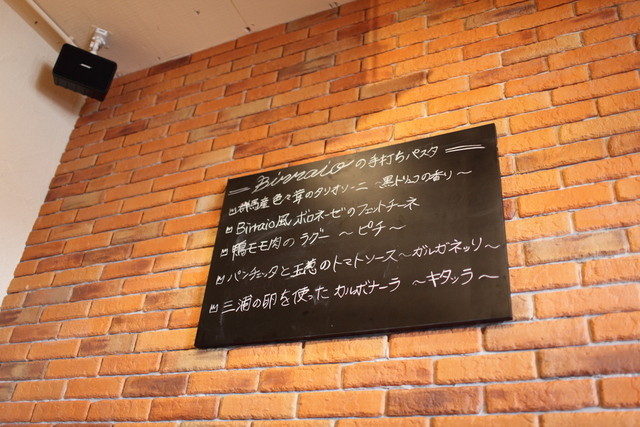 Birraioの手打ちパスタ
群馬産 色々茸のタリオリーニ 〜黒トリュフの香り〜
Birraio風 ボロネーゼのフェットチーネ
鴨モモ肉のラグー 〜ピチ〜
パンチェッタと玉葱のトマトソース〜ガルガネッリ〜
三浦の卵を使った カルボナーラ 〜キタッラ〜